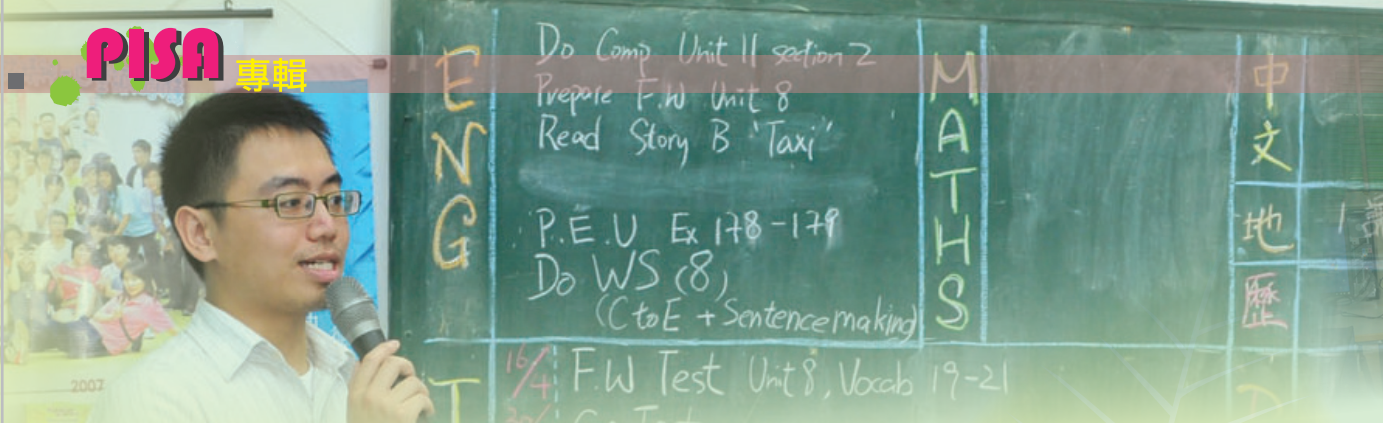 PISA 專輯
ENG
Do Comp Unit 11 section 2
Prepare F.W Unit 8
Read Story B 'Taxi'
P.E.U Ex 178-179
Do WS (8)
(C to E + Sentence making)
MATHS
中文
地
歷
16/4 F.W Test Unit 8, Vocab 19-21
T
D
2007